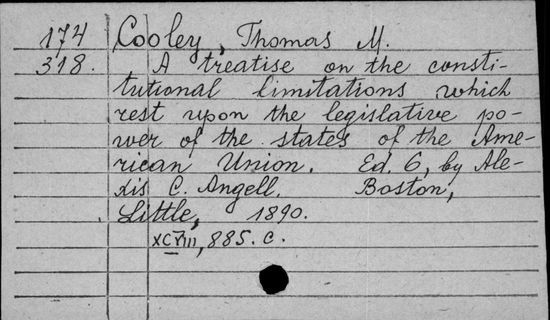 174 Cooley, Thomas M.
318. A treatise on the consti-
tutional limitations which
rest upon the legislative po-
wer of the states of the Ame-
rican Union. Ed. 6, by Ale-
xis C. Angell. Boston,
Little, 1890.
XCVIII, 885. c.